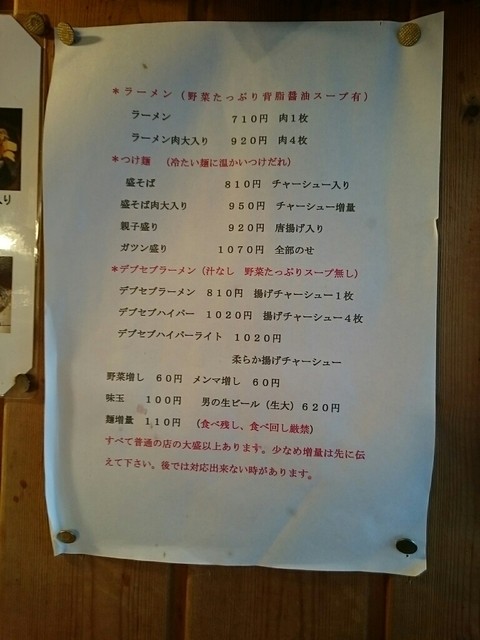 ＊ラーメン（野菜たっぷり背脂醤油スープ有）
ラーメン　７１０円　肉１枚
ラーメン肉大入り　９２０円　肉４枚
＊つけ麺　（冷たい麺に温かいつけだれ）
盛そば　８１０円　チャーシュー入り
盛そば肉大入り　９５０円　チャーシュー増量
親子盛り　９２０円　唐揚げ入り
ガツン盛り　１０７０円　全部のせ
＊デブセブラーメン（汁なし　野菜たっぷりスープ無し）
デブセブラーメン　８１０円　揚げチャーシュー１枚
デブセブハイパー　１０２０円　揚げチャーシュー４枚
デブセブハイパーライト　１０２０円
柔らか揚げチャーシュー
野菜増し　６０円　メンマ増し　６０円
味玉　１００円　男の生ビール（生大）６２０円
麺増量　１１０円　（食べ残し、食べ回し厳禁）
すべて普通の店の大盛以上あります。少なめ増量は先に伝
えて下さい。後では対応出来ない時があります。